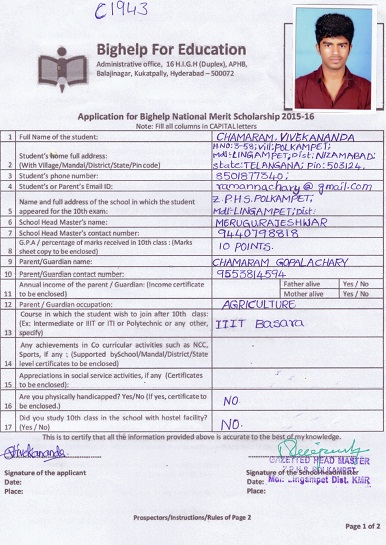 C1943
Bighelp For Education
Administrative office, 16 H.I.G.H (Duplex), APHB,
Balajinagar, Kukatpally, Hyderabad – 500072
Application for Bighelp National Merit Scholarship 2015-16
Note: Fill all columns in CAPITAL letters
1 Full Name of the student: CHAMARAM. VIVEKANANDA
H.NO:3-58; Vill: POLKAMPET;
Student's home full address: Mdl:-LINGAMPET, Dist: NIZAMABAD;
2 (With Village/Mandal/District/State/Pincode) state: TELANGANA; Pin: 503124.
3 Student's phone number: 8501877340;
4 Student's or Parent's Email ID: ramannachary@gmail.com
Name and full address of the school in which the student Z.P.H.S. POLKAMPET;
5 appeared for the 10th exam: Mdl:-LINGAMPET; Dist:
6 School Head Master's name: MERUGU. RAJESHWAR
7 School Head Master's contact number: 9440798818
G.P.A / percentage of marks received in 10th class : (Marks
8 sheet copy to be enclosed) 10 POINTS.
9 Parent/Guardian name: CHAMARAM GOPALACHARY
10 Parent/Guardian contact number: 9553814594
Annual income of the parent / Guardian: (Income certificate Father alive Yes / No
11 to be enclosed) Mother alive Yes / No
12 Parent / Guardian occupation: AGRICULTURE
Course in which the student wish to join after 10th class:
(Ex: Intermediate or IIIT or ITI or Polytechnic or any other, IIIT Basara
13 specify)
Any achievements in Co curricular activities such as NCC,
Sports, if any : (Supported bySchool/Mandal/District/State
14 level certificates to be enclosed)
Appreciations in social service activities, if any (Certificates
15 to be enclosed):
Are you physically handicapped? Yes/No (If yes, certificate to
16 be enclosed.) NO.
Did you study 10th class in the school with hostel facility?
17 (Yes / No) NO.
This is to certify that all the information provided above is accurate to the best of my knowledge.
Vivekananda
GAZETTED HEAD MASTER
Signature of the applicant Signature of the School Headmaster
Z.P.H.S POLKAMPET
Date: Date: Mdl: Lingampet Dist. KMR
Place: Place:
Prospectors/Instructions/Rules of Page 2
Page 1 of 2